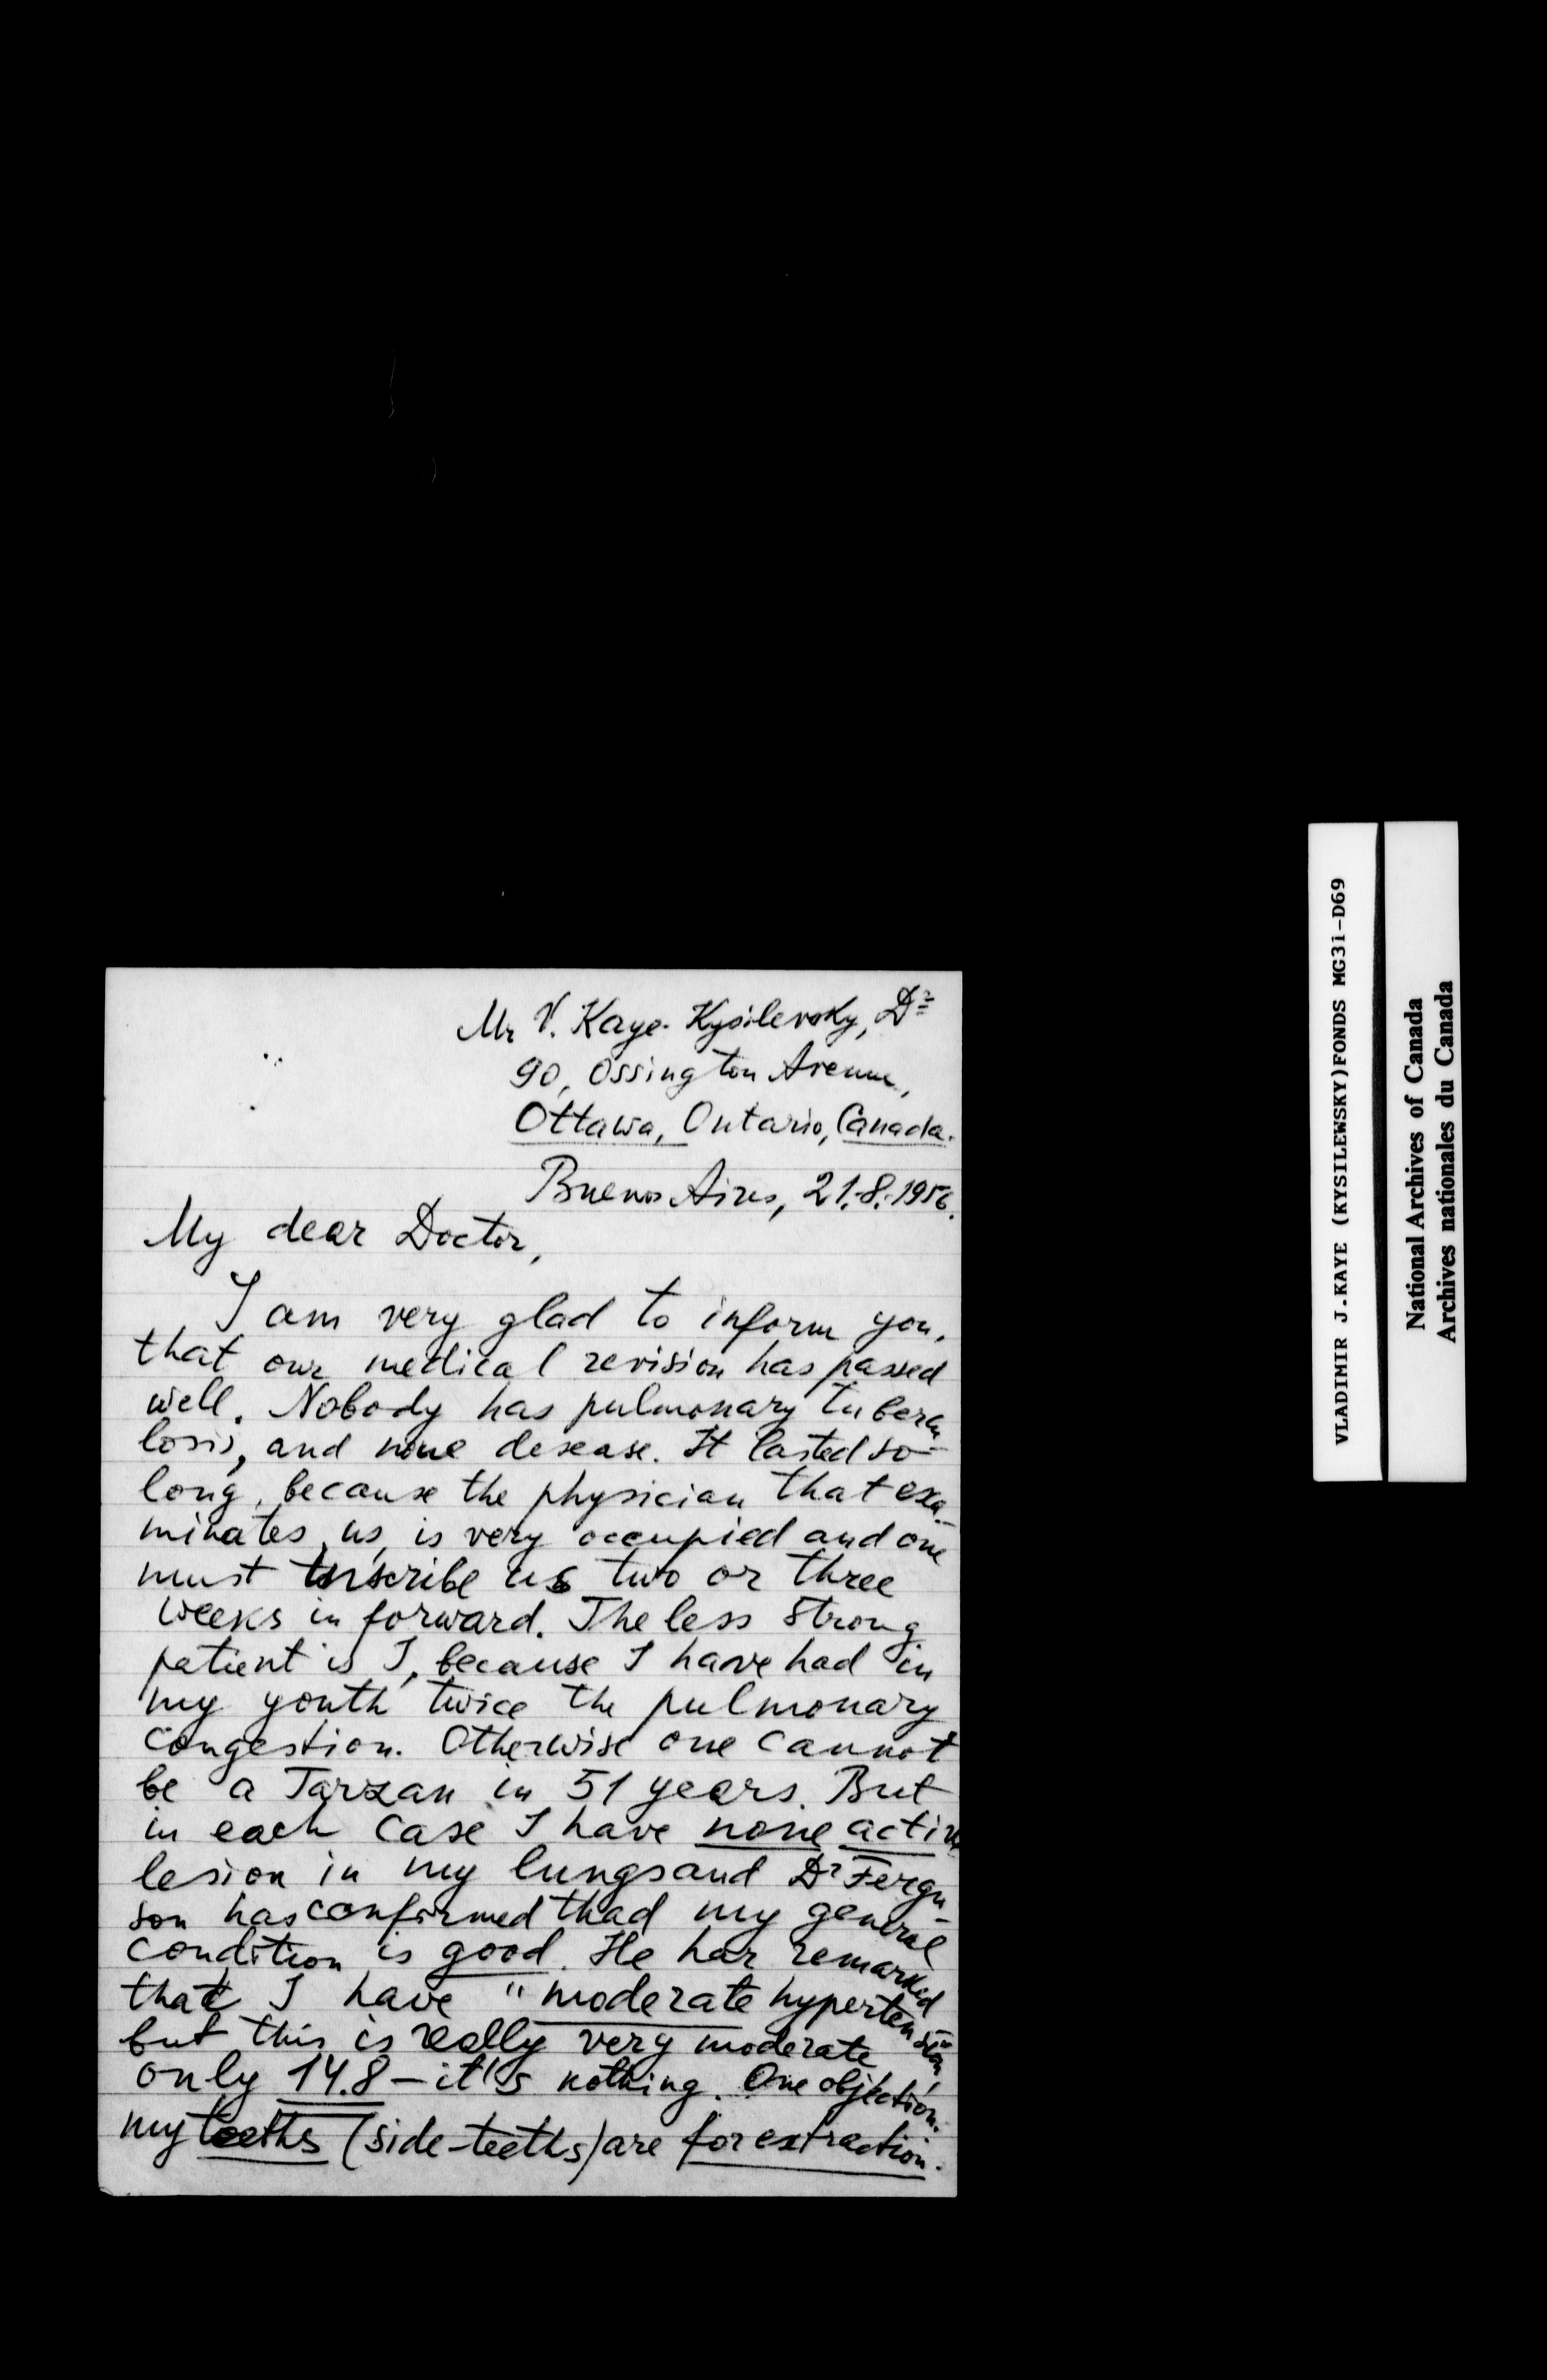 Mr V. Kaye-Kysilevsky, Dr
90, Ossington Avenue,
Ottawa, Ontario, Canada.
Buenos Aires, 21.-8.-1956.
My dear Doctor,
I am very glad to inform you,
that our medical revision has passed
well. Nobody has pulmonary tubercu-
losis, and none desease. It lasted so
long, because the physician that exa-
minates us, is very occupied and one
must inscribe us two or three
weeks in forward. The less strong
patient is I, because I have had in
my youth twice the pulmonary
congestion. Otherwise one cannot
be a Tarzan in 51 years. But
in each case I have none active
lesion in my lungs and Dr Fergu-
son has confirmed thad my general
condition is good. He har remarked
that I have "moderate hypertension,
but this is really very moderate
only 14.8 – it's nothing. One objection:
my teeths (side-teeths) are for extraction.
VLADIMIR J.KAYE (KYSILEWSKY)FONDS MG3i-D69
National Archives of Canada
Archives nationales du Canada